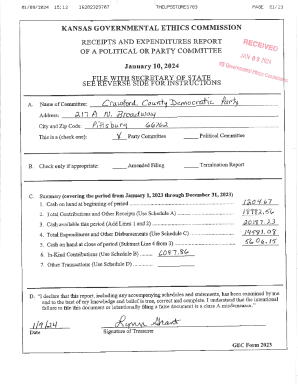 01/09/2024 15:12 16202329787 THEUPSSTORE5703 PAGE 01/23
KANSAS GOVERNMENTAL ETHICS COMMISSION
RECEIPTS AND EXPENDITURES REPORT
OF A POLITICAL OR PARTY COMMITTEE
RECEIVED
JAN 09 2024
KS Governmental Ethics Commission
January 10, 2024
FILE WITH SECRETARY OF STATE
SEE REVERSE SIDE FOR INSTRUCTIONS
A. Name of Committee: Crawford County Democratic Party
Address: 217 A N. Broadway
City and Zip Code: Pittsburg 66762
This is a (check one): X Party Committee Political Committee
B. Check only if appropriate: Amended Filing Termination Report
C. Summary (covering the period from January 1, 2023 through December 31, 2023)
1. Cash on hand at beginning of period 1204.67
2. Total Contributions and Other Receipts (Use Schedule A) 18982.56
3. Cash available this period (Add Lines 1 and 2) 20187.23
4. Total Expenditures and Other Disbursements (Use Schedule C) 14581.08
5. Cash on hand at close of period (Subtract Line 4 from 3) 5606.15
6. In-Kind Contributions (Use Schedule B) 6087.86
7. Other Transactions (Use Schedule D)
D. "I declare that this report, including any accompanying schedules and statements, has been examined by me
and to the best of my knowledge and belief is true, correct and complete. I understand that the intentional
failure to file this document or intentionally filing a false document is a class A misdemeanor."
1/9/24 Lynn Grant
Date Signature of Treasurer
GEC Form 2023